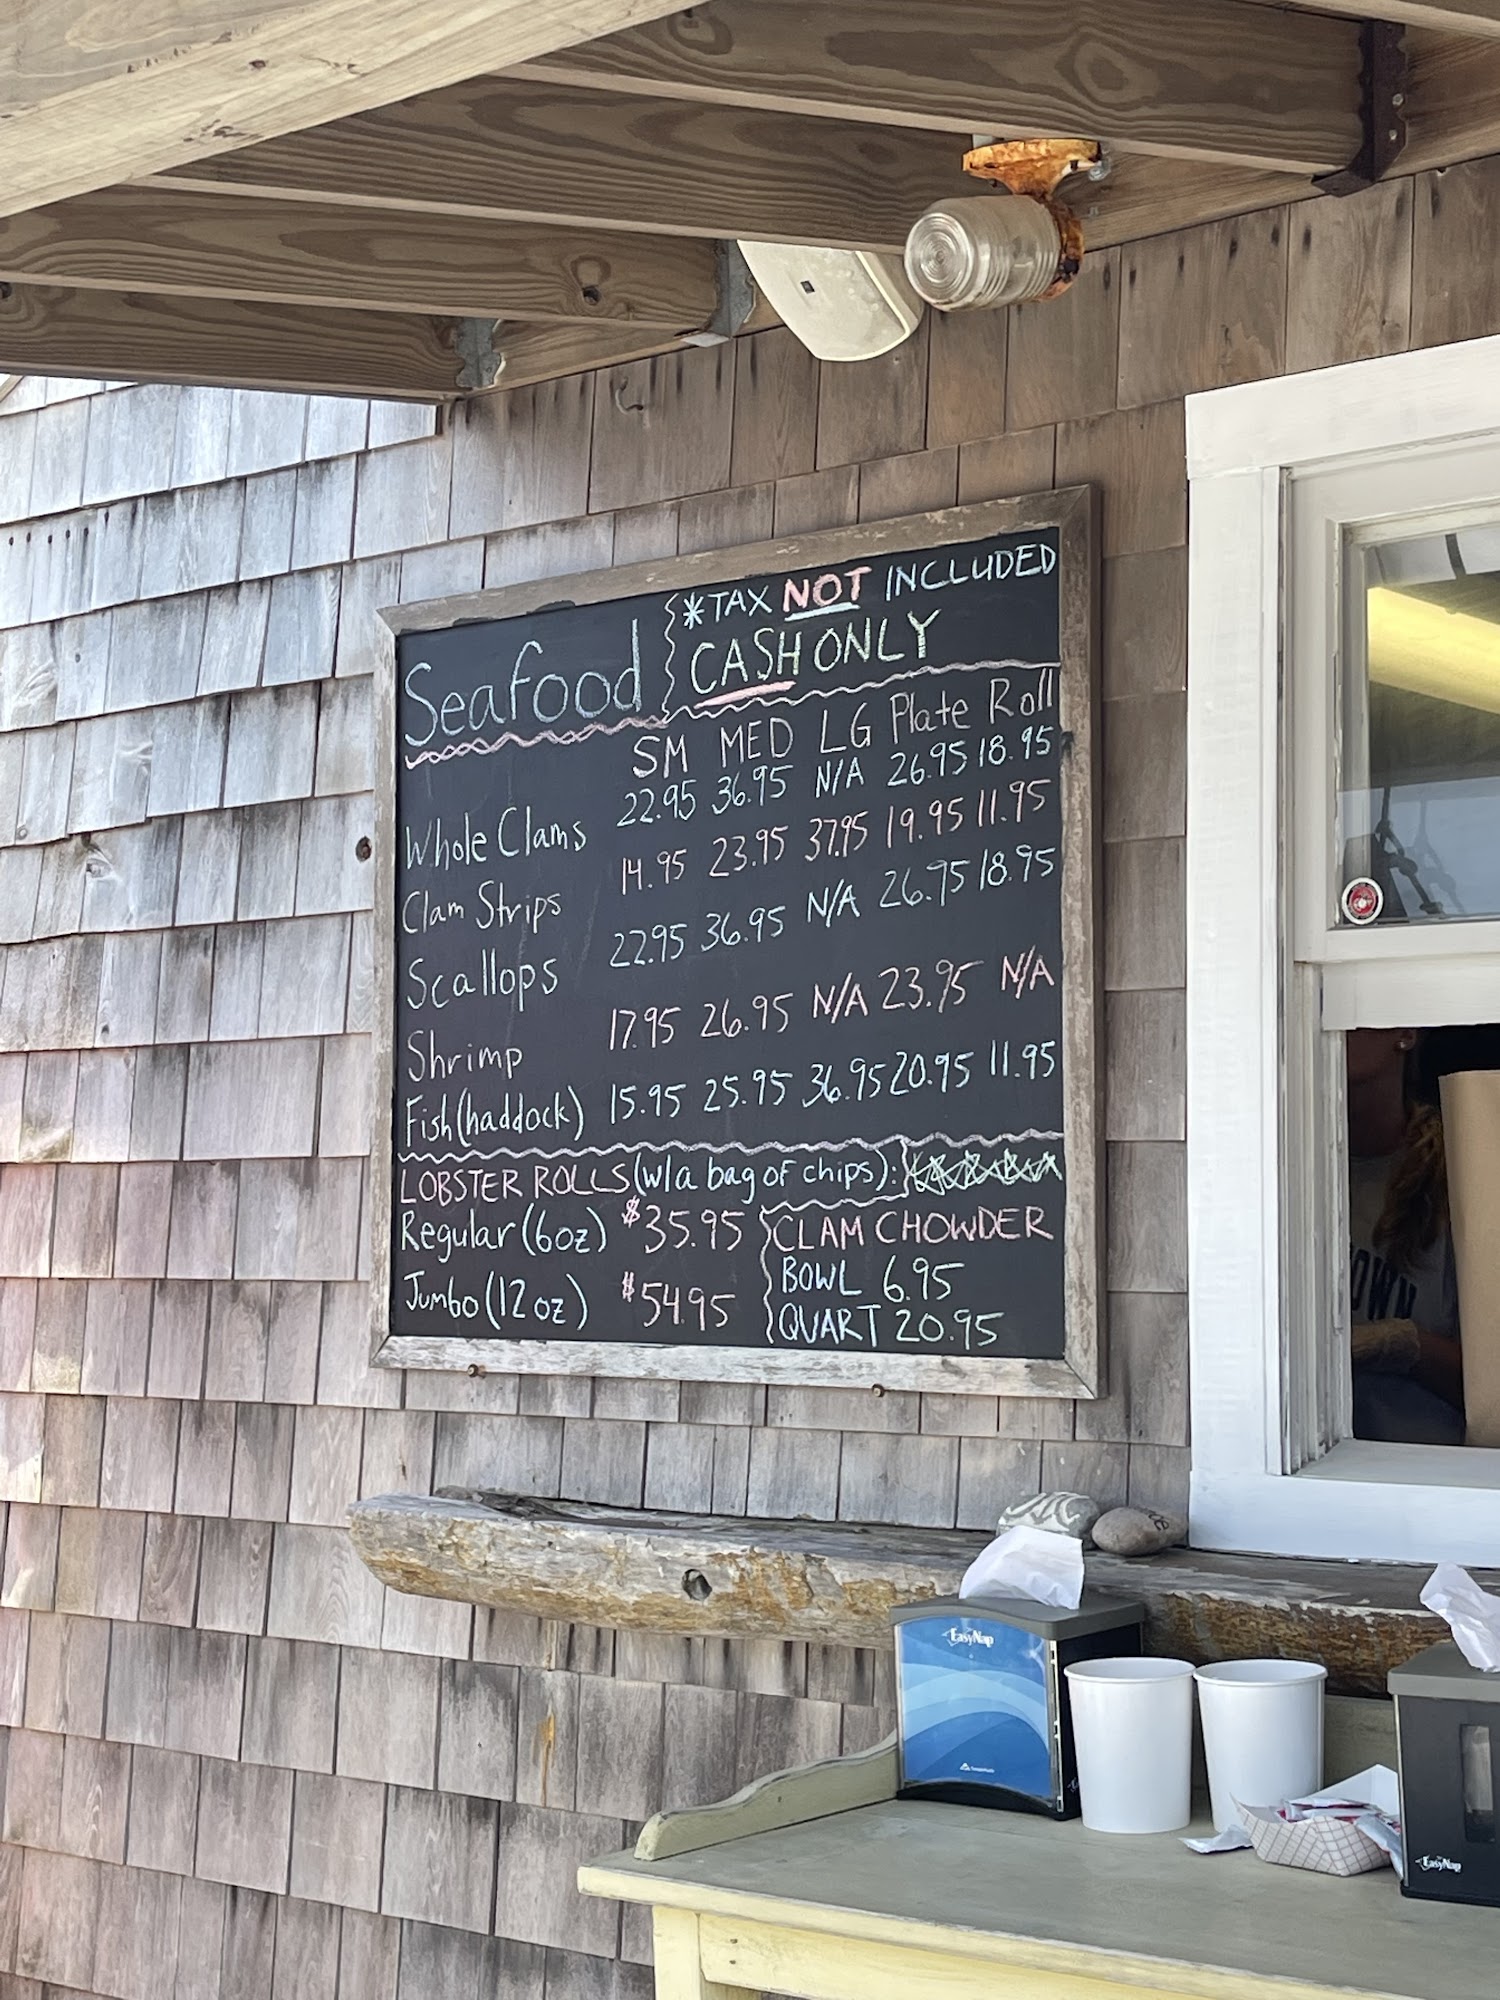 Seafood
*TAX NOT INCLUDED
CASH ONLY
SM MED LG Plate Roll
Whole Clams 22.95 36.95 N/A 26.95 18.95
Clam Strips 14.95 23.95 37.95 19.95 11.95
Scallops 22.95 36.95 N/A 26.95 18.95
Shrimp 17.95 26.95 N/A 23.95 N/A
Fish (haddock) 15.95 25.95 36.95 20.95 11.95
LOBSTER ROLLS (w/a bag of chips):
Regular (6oz) $35.95
Jumbo (12oz) $54.95
CLAM CHOWDER
BOWL 6.95
QUART 20.95
EasyNap
EasyNap